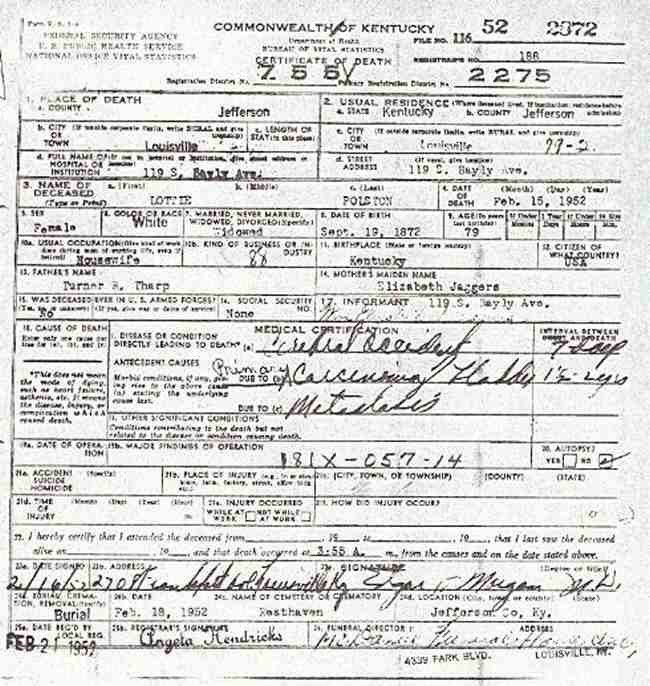 COMMONWEALTH OF KENTUCKY
FEDERAL SECURITY AGENCY
U. S. PUBLIC HEALTH SERVICE
NATIONAL OFFICE VITAL STATISTICS
Department of Health
BUREAU OF VITAL STATISTICS
CERTIFICATE OF DEATH
FILE NO. 116 52 2372
REGISTRAR'S NO. 188
Registration District No. 755 Primary Registration District No. 2275
1. PLACE OF DEATH
a. COUNTY Jefferson
2. USUAL RESIDENCE (Where deceased lived. If institution: residence before admission)
a. STATE Kentucky b. COUNTY Jefferson
b. CITY (If outside corporate limits, write RURAL and give township) OR TOWN Louisville
c. LENGTH OF STAY (in this place)
c. CITY (If outside corporate limits, write RURAL and give township) OR TOWN Louisville 99-2
d. FULL NAME OF (If not in hospital or institution, give street address or location) HOSPITAL OR INSTITUTION 119 S. Bayly Ave.
d. STREET ADDRESS (If rural, give location) 119 S. Bayly Ave.
3. NAME OF DECEASED (Type or Print)
a. (First) LOTTIE b. (Middle) c. (Last) POLSTON
4. DATE OF DEATH (Month) (Day) (Year) Feb. 15, 1952
5. SEX Female
6. COLOR OR RACE White
7. MARRIED, NEVER MARRIED, WIDOWED, DIVORCED (Specify) Widowed
8. DATE OF BIRTH Sept. 19, 1872
9. AGE (In years last birthday) 79
If Under 1 Year Months Days
If Under 24 Hrs Hours Min.
10a. USUAL OCCUPATION (Give kind of work done during most of working life, even if retired) Housewife
10b. KIND OF BUSINESS OR INDUSTRY
11. BIRTHPLACE (State or foreign country) Kentucky
12. CITIZEN OF WHAT COUNTRY? USA
13. FATHER'S NAME Turner R. Tharp
14. MOTHER'S MAIDEN NAME Elizabeth Jaggers
15. WAS DECEASED EVER IN U. S. ARMED FORCES? (Yes, no, or unknown) (If yes, give war or dates of service) No
16. SOCIAL SECURITY NO. None
17. INFORMANT 119 S. Bayly Ave.
18. CAUSE OF DEATH
Enter only one cause per line for (a), (b), and (c)
MEDICAL CERTIFICATION
INTERVAL BETWEEN ONSET AND DEATH
I. DISEASE OR CONDITION DIRECTLY LEADING TO DEATH* (a) Accident
ANTECEDENT CAUSES
*This does not mean the mode of dying, such as heart failure, asthenia, etc. It means the disease, injury, or complication which caused death.
Morbid conditions, if any, giving rise to the above cause (a) stating the underlying cause last.
Primary DUE TO (b) Carcinoma Bladder
DUE TO (c) Metastases
II. OTHER SIGNIFICANT CONDITIONS
Conditions contributing to the death but not related to the disease or condition causing death.
19a. DATE OF OPERATION
19b. MAJOR FINDINGS OF OPERATION
181X-057-14
20. AUTOPSY? YES NO
21a. ACCIDENT SUICIDE HOMICIDE (Specify)
21b. PLACE OF INJURY (e.g., in or about home, farm, factory, street, office bldg., etc.)
21c. (CITY, TOWN, OR TOWNSHIP) (COUNTY) (STATE)
21d. TIME OF INJURY (Month) (Day) (Year) (Hour) m.
21e. INJURY OCCURRED WHILE AT WORK NOT WHILE AT WORK
21f. HOW DID INJURY OCCUR?
22. I hereby certify that I attended the deceased from , 19 to , 19 , that I last saw the deceased
alive on , 19 , and that death occurred at 3:55 A. m., from the causes and on the date stated above.
23a. DATE SIGNED 23b. ADDRESS 23c. SIGNATURE (Degree or title)
2/16/52
24a. BURIAL, CREMATION, REMOVAL (Specify) Burial
24b. DATE Feb. 18, 1952
24c. NAME OF CEMETERY OR CREMATORY Resthaven
24d. LOCATION (City, town, or county) (State) Jefferson Co, Ky.
25a. DATE REC'D BY LOCAL REG. FEB 21 1952
25b. REGISTRAR'S SIGNATURE Angela Hendricks
26. FUNERAL DIRECTOR ADDRESS
McDaniel Funeral Home
4339 PARK BLVD. LOUISVILLE, KY.